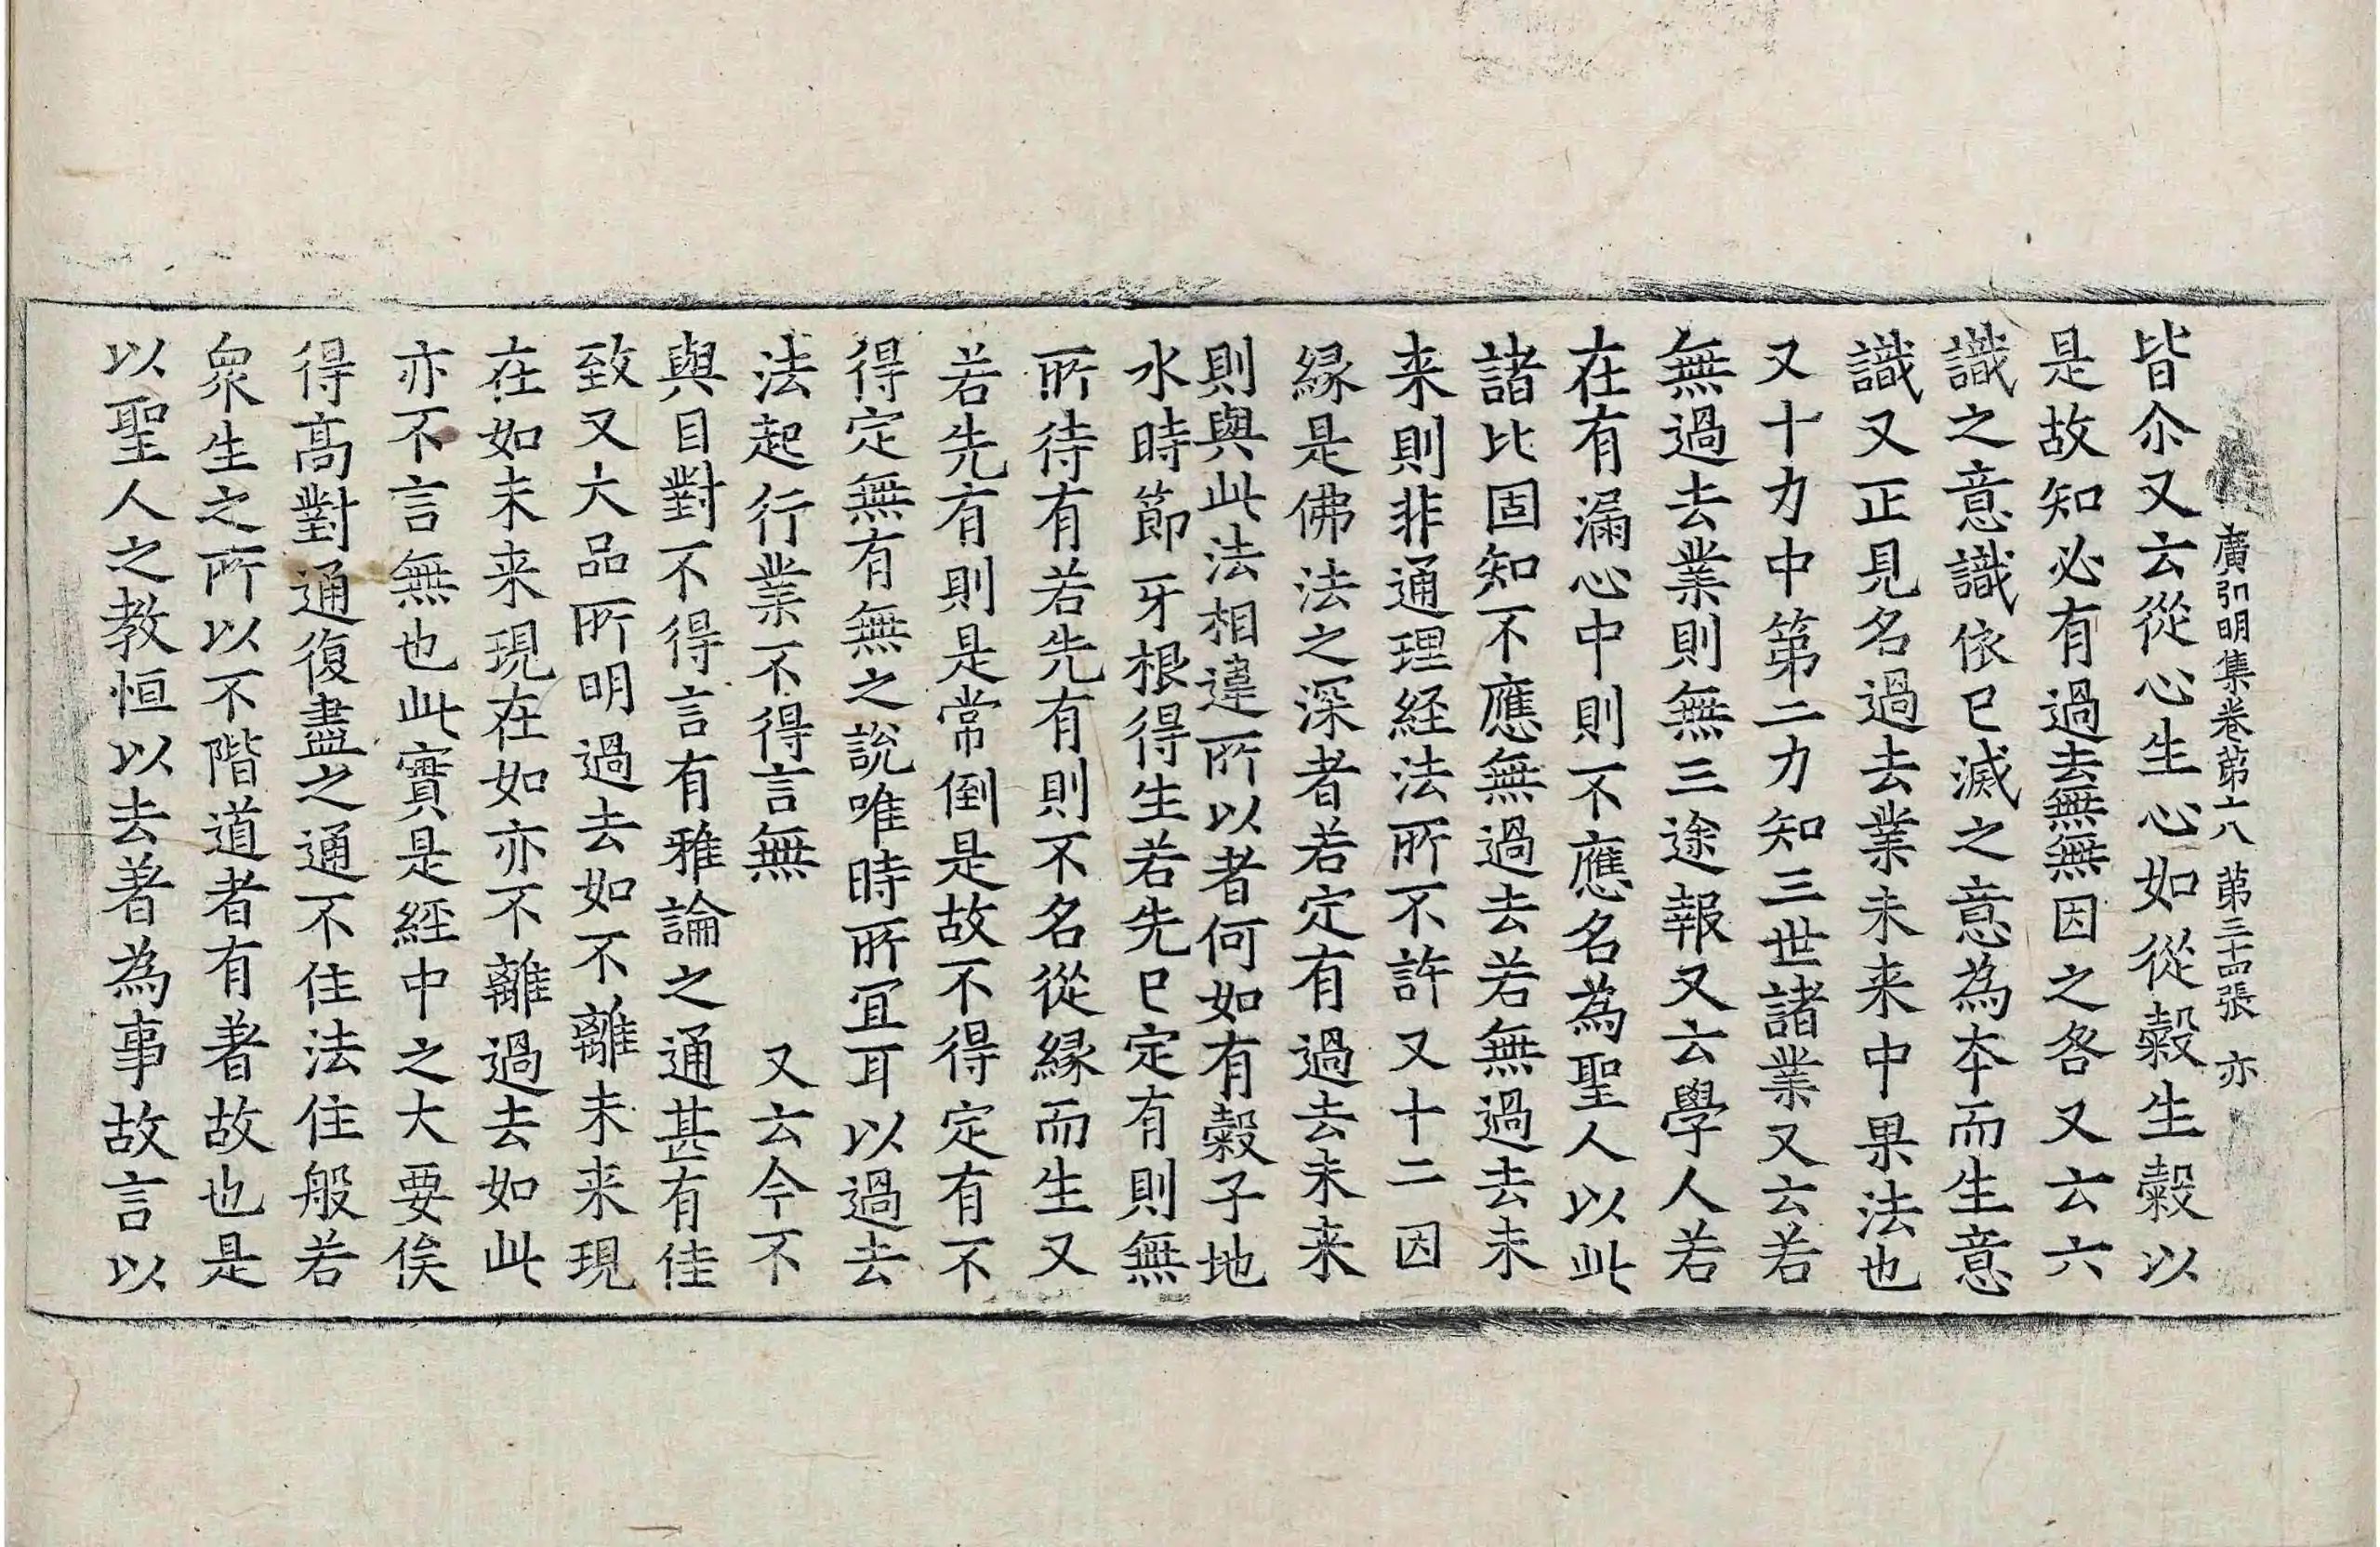 廣弘明集卷第六八 第三十四張 亦
皆尒又云從心生心如從縠生縠以
是故知必有過去無無因之咎又云六
識之意識依已滅之意為本而生意
識又正見名過去業未来中果法也
又十力中第二力知三世諸業又云若
無過去業則無三途報又云學人若
在有漏心中則不應名為聖人以此
諸比固知不應無過去若無過去未
来則非通理経法所不許又十二因
縁是佛法之深者若定有過去未来
則與此法相違所以者何如有縠子地
水時節牙根得生若先已定有則無
所待有若先有則不名從縁而生又
若先有則是常倒是故不得定有不
得定無有無之說唯時所冝耳以過去
法起行業不得言無　又云今不
與目對不得言有雅論之通甚有佳
致又大品所明過去如不離未来現
在如未来現在如亦不離過去如此
亦不言無也此實是經中之大要俟
得髙對通復盡之通不住法住般若
衆生之所以不階道者有著故也是
以聖人之教恒以去著為事故言以